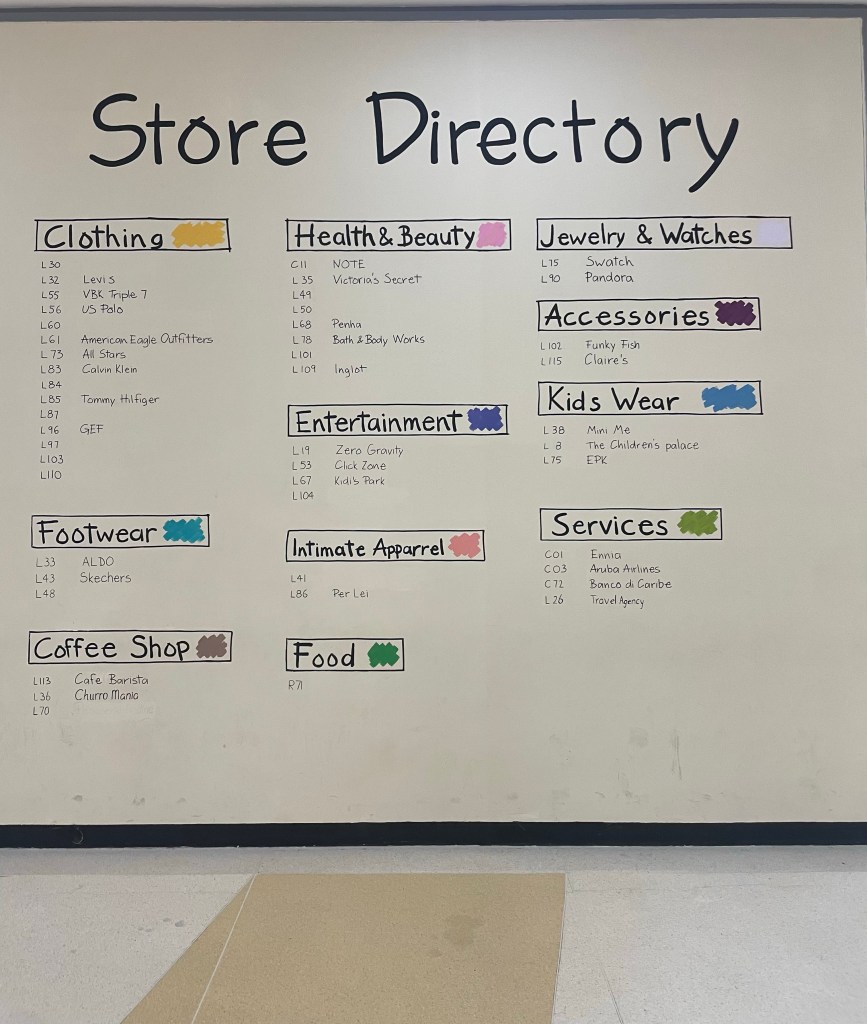 Store Directory
Clothing
L30
L32 Levi's
L55 VBK Triple 7
L56 US Polo
L60
L61 American Eagle Outfitters
L73 All Stars
L83 Calvin Klein
L84
L85 Tommy Hilfiger
L87
L96 GEF
L97
L103
L110
Footwear
L33 ALDO
L43 Skechers
L48
Coffee Shop
L113 Cafe Barista
L36 Churro Mania
L70
Health & Beauty
C11 NOTE
L35 Victoria's Secret
L49
L50
L68 Penha
L78 Bath & Body Works
L101
L109 Inglot
Entertainment
L19 Zero Gravity
L53 Click Zone
L67 Kidi's Park
L104
Intimate Apparrel
L41
L86 Per Lei
Food
R71
Jewelry & Watches
L75 Swatch
L90 Pandora
Accessories
L102 Funky Fish
L115 Claire's
Kids Wear
L38 Mini Me
L8 The Children's palace
L75 EPK
Services
C01 Ennia
C03 Aruba Airlines
C72 Banco di Caribe
L26 Travel Agency